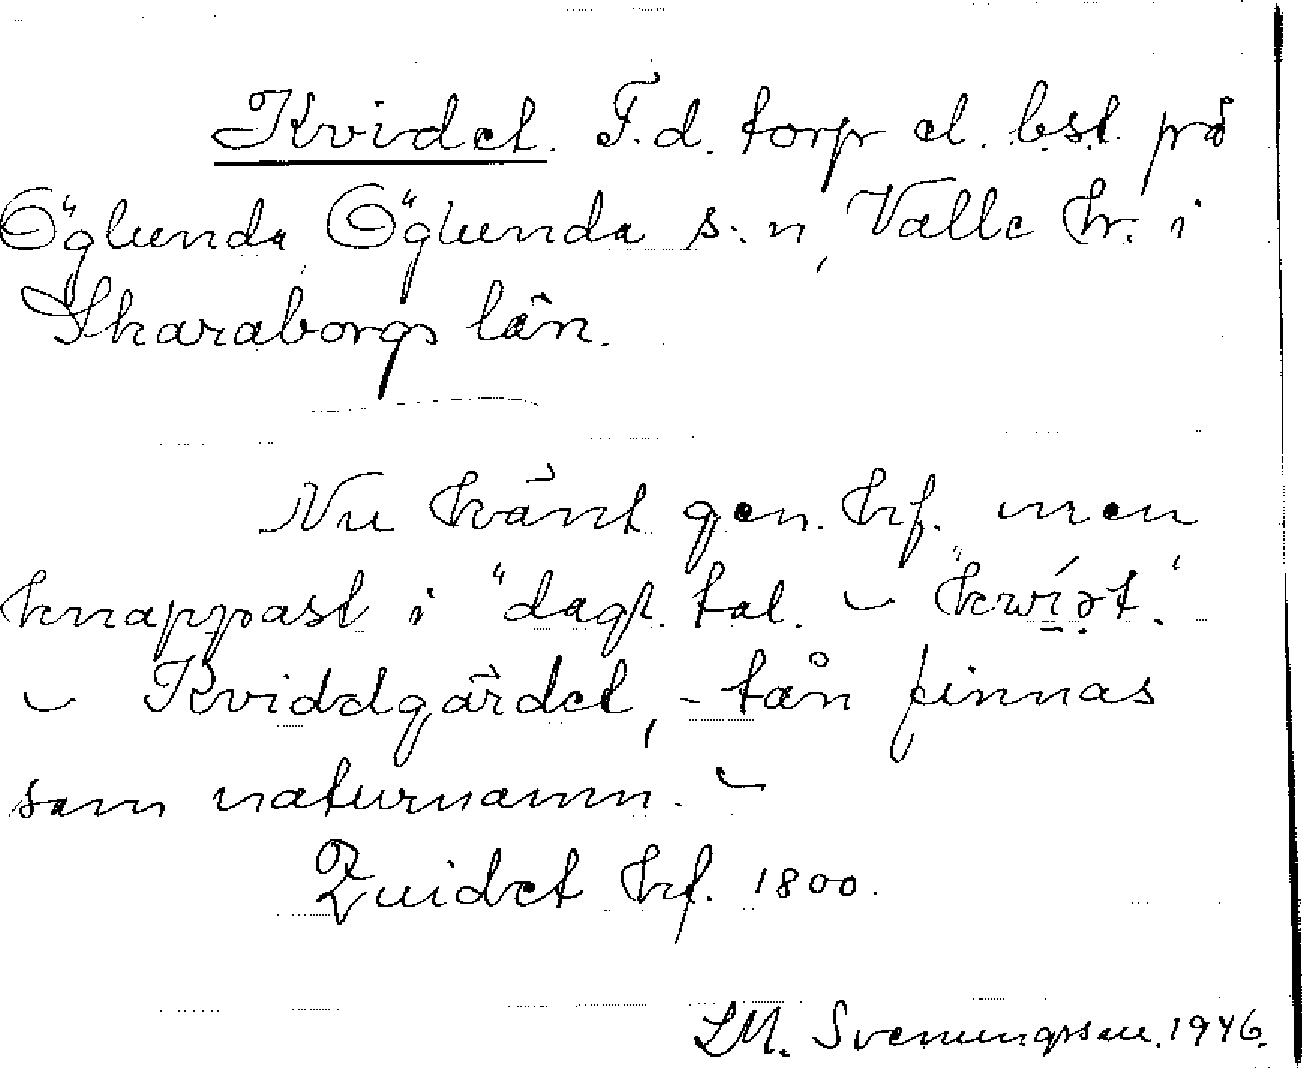 Kvidet. F.d. torp el. bst. på
Öglunda, Öglunda s:n, Valle hr. i
Skaraborgs län.
Nu känt gen. krf. men
knappast i "dagl. tal. –
– Kviddgärdet, – tån finnas
som naturnamn. –
Quidet krf. 1800.
LM. Svenungsson. 1946.